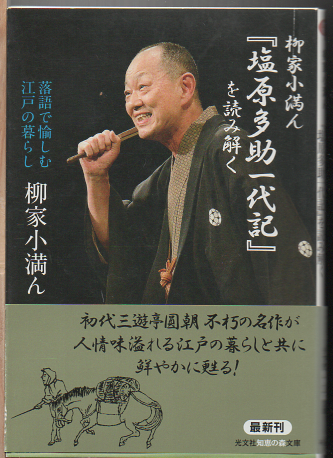 柳家小満ん
『塩原多助一代記』
を読み解く
落語で愉しむ
江戸の暮らし
柳家小満ん
初代三遊亭圓朝 不朽の名作が
人情味溢れる江戸の暮らしと共に
鮮やかに甦る!
最新刊
光文社知恵の森文庫